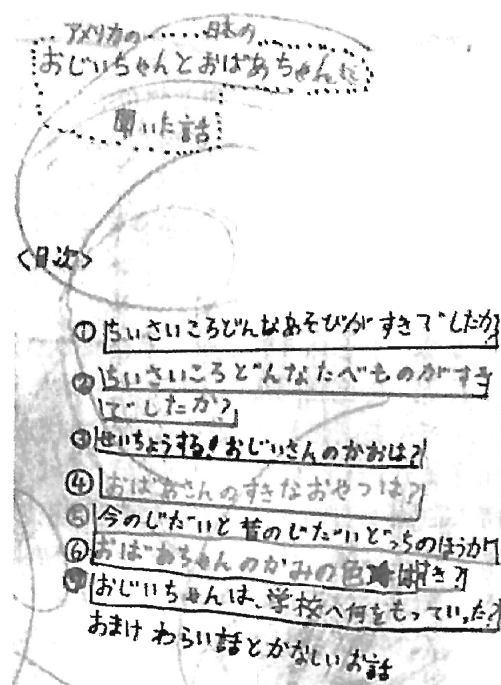 アメリカの 日本の
おじいちゃんとおばあちゃんに
聞いた話
<目次>
① ちいさいころどんなあそびがすきでしたか?
② ちいさいころどんなたべものがすき
でしたか?
③ せいちょうする!おじいさんのかおは?
④ おばあさんのすきなおやつは?
⑤ 今のじだいと昔のじだいどっちのほうが
⑥ おばあちゃんのかみの色は
⑦ おじいちゃんは、学校へ何をもっていった?
おまけ わらい話とかなしいお話